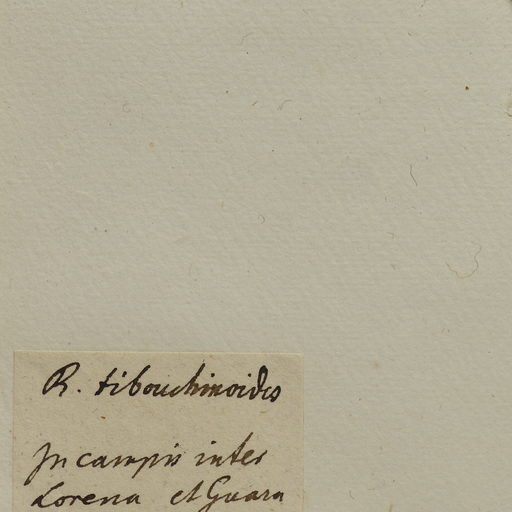 R. tibouchinoides
In campis inter
Lorena et Guara